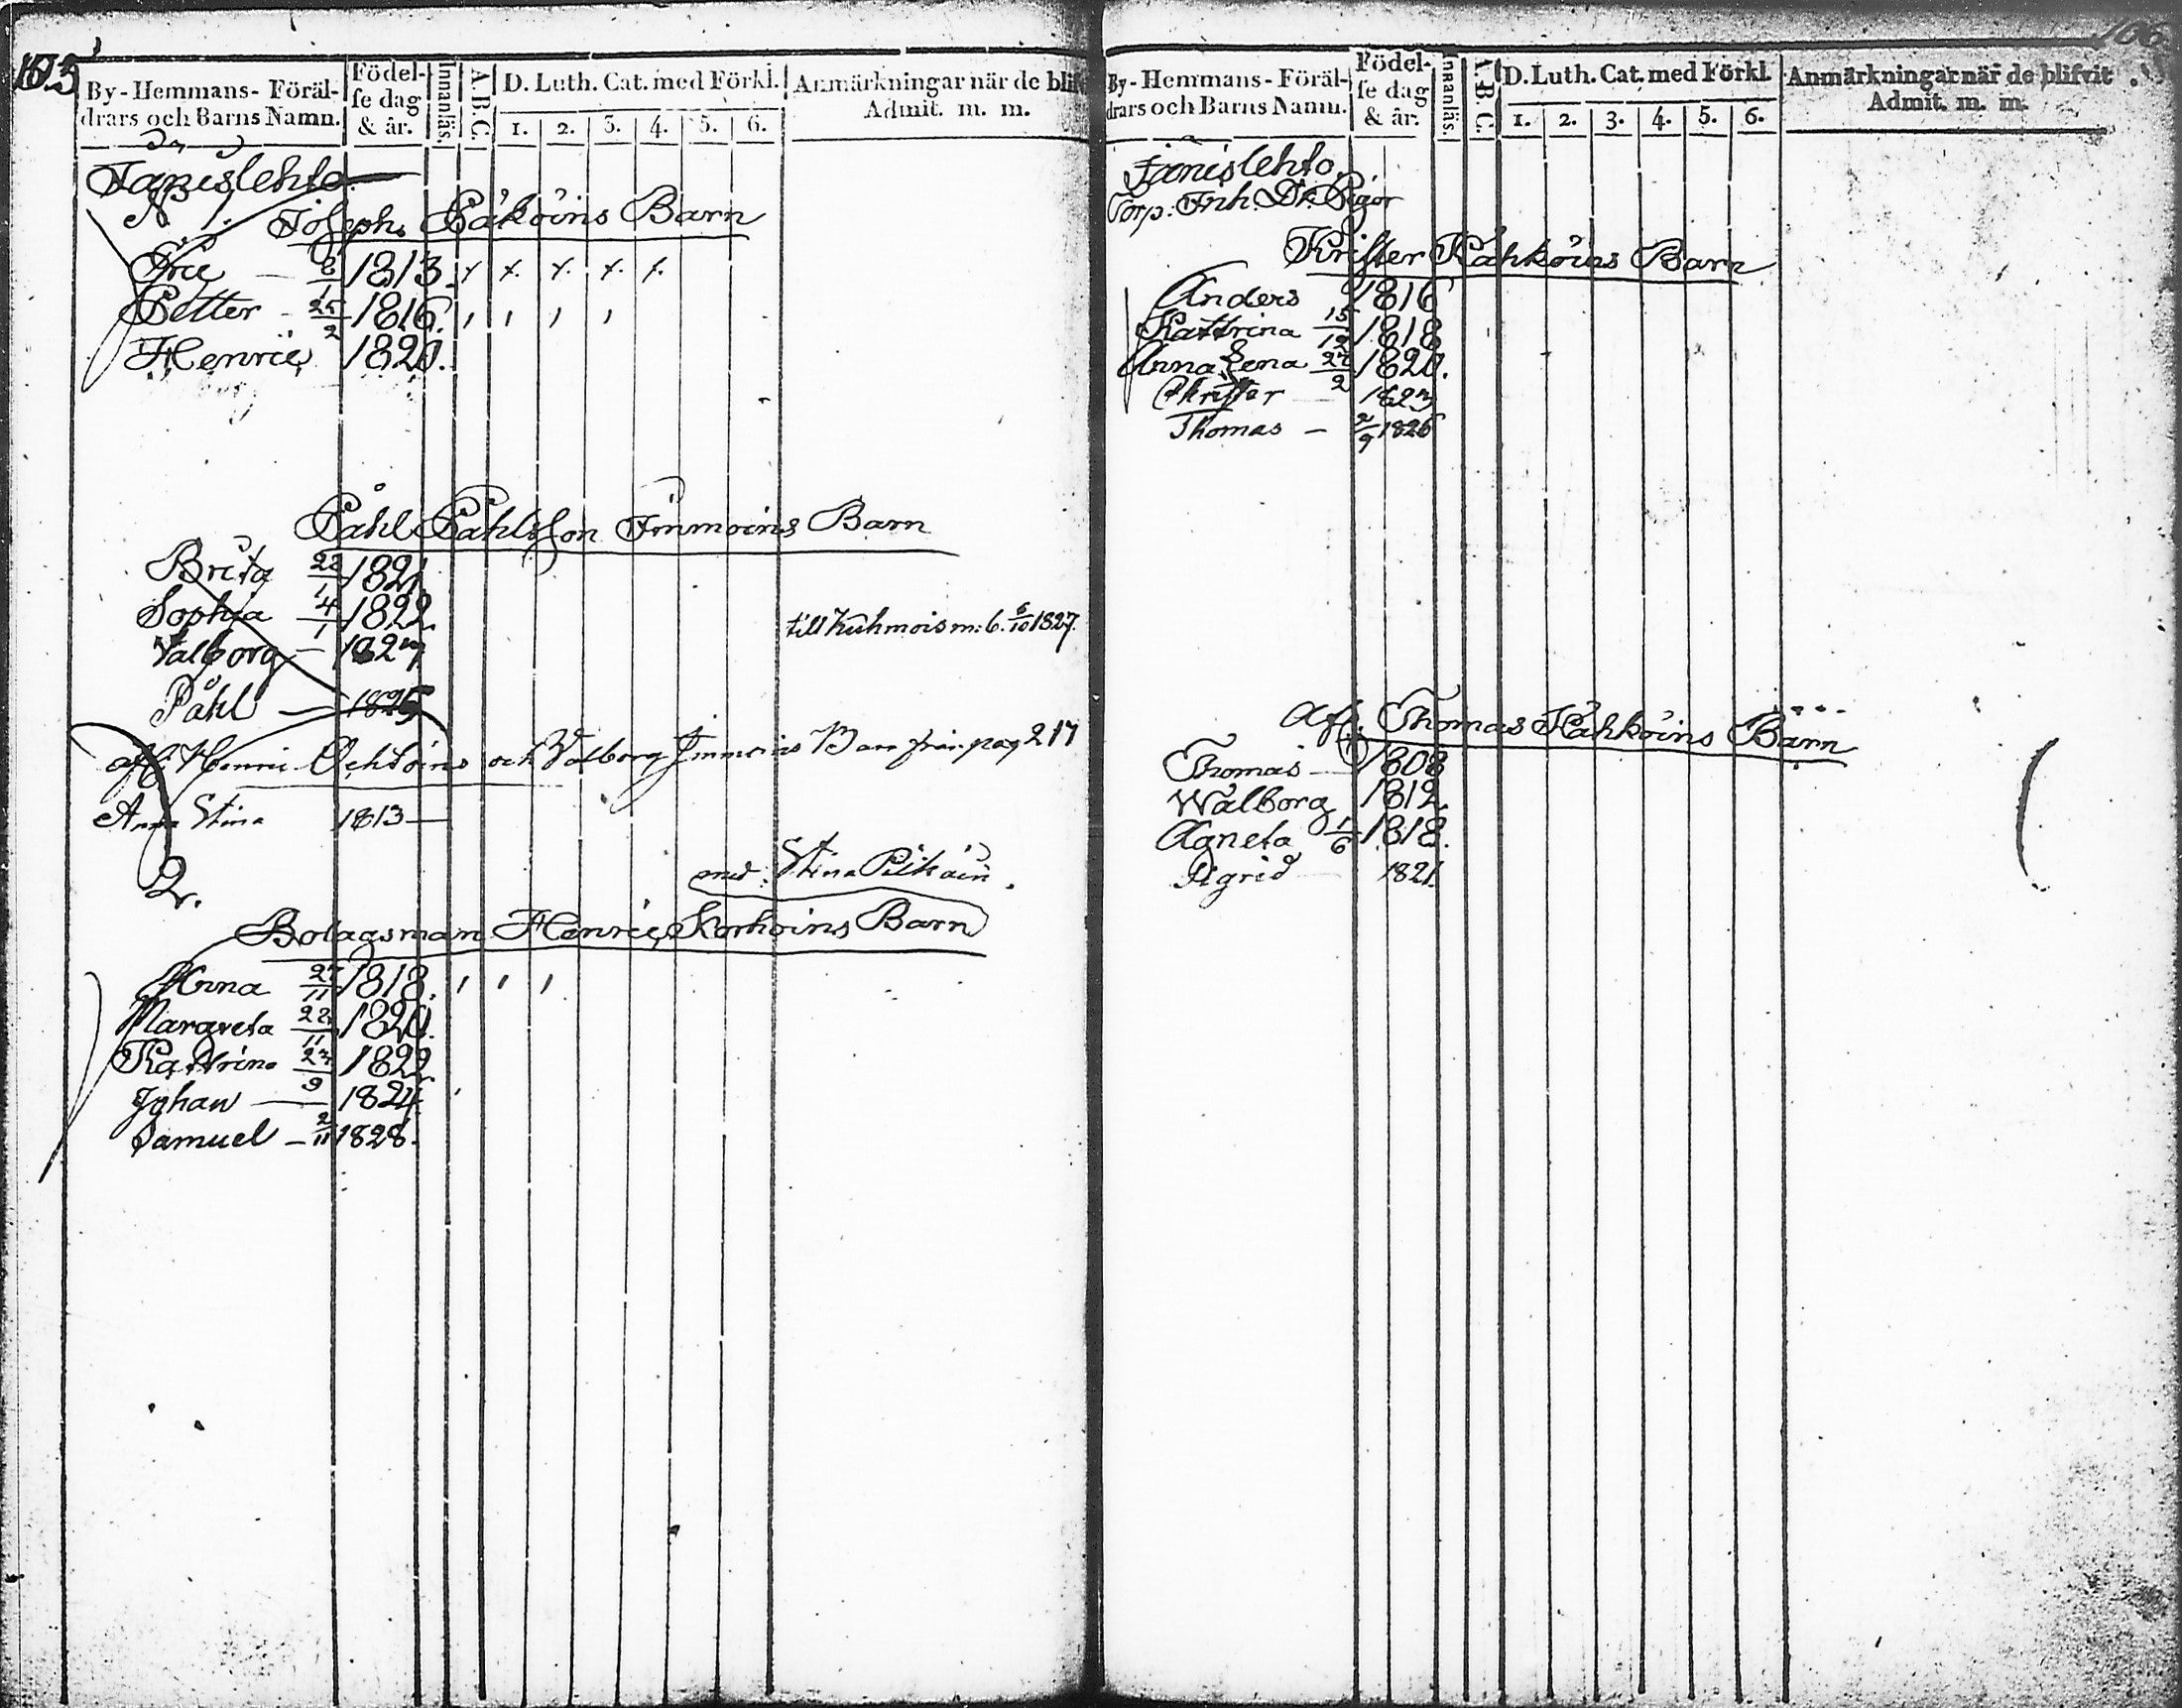 105
By-Hemmans-Föräl-
drars och Barns Namn.
Födel-
se dag
& år.
Innanläs.
A.B.C.
D. Luth. Cat. med Förkl.
1. 2. 3. 4. 5. 6.
Anmärkningar när de blif
Admit. m. m.
Janislehto
N 1.
Joseph Påköins Barn
8/1 1813
Petter 25/2 1816
Henric 1820.
Påhl Påhlsson Immoins Barn
Brita 22/1 1821
Sophia 4/1 1822
till Kuhmois m: 6. 6/10 1827.
Valborg – 1823
Påhl – 1825
och Valborg Immoins Barn från pag 217
Anna Stina 1813
2.
med: Stina
Bolagsman Henric Korhoins Barn
Anna 27/11 1818.
Margreta 22/11 1820.
Kattrina 23/9 1822
Johan – 1824
Samuel – 2/11 1828.
106
By-Hemmans-Föräl-
drars och Barns Namn.
Födel-
se dag
& år.
Innanläs.
A.B.C.
D. Luth. Cat. med Förkl.
1. 2. 3. 4. 5. 6.
Anmärkningar när de blifvit
Admit. m. m.
Janislehto.
Torp. Inh. Dr. Pigor
Krister Kåhköins Barn
Anders 1816
Kattrina 15/12 1818
Anna Lena 24/2 1820.
Christer 1823
Thomas – 2/9 1826
Afl. Thomas Kåhköins Barn
Thomas 1808
Walborg 1812.
Agneta 1/6 1818.
Sigrid 1821.